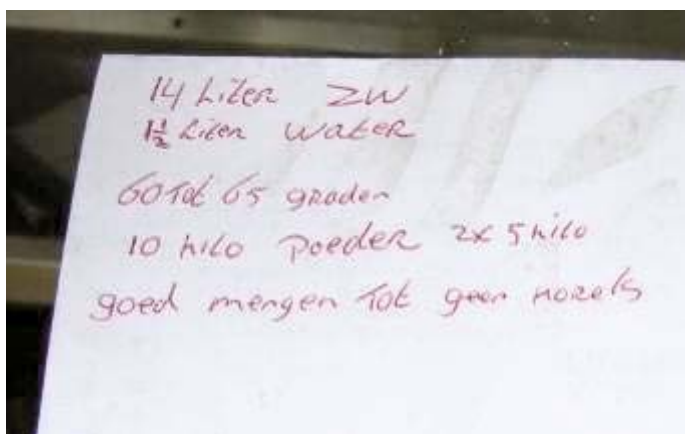 14 Liter ZW
1½ Liter Water
60 Tot 65 graden
10 kilo Poeder 2x 5 kilo
goed mengen Tot geen korrels